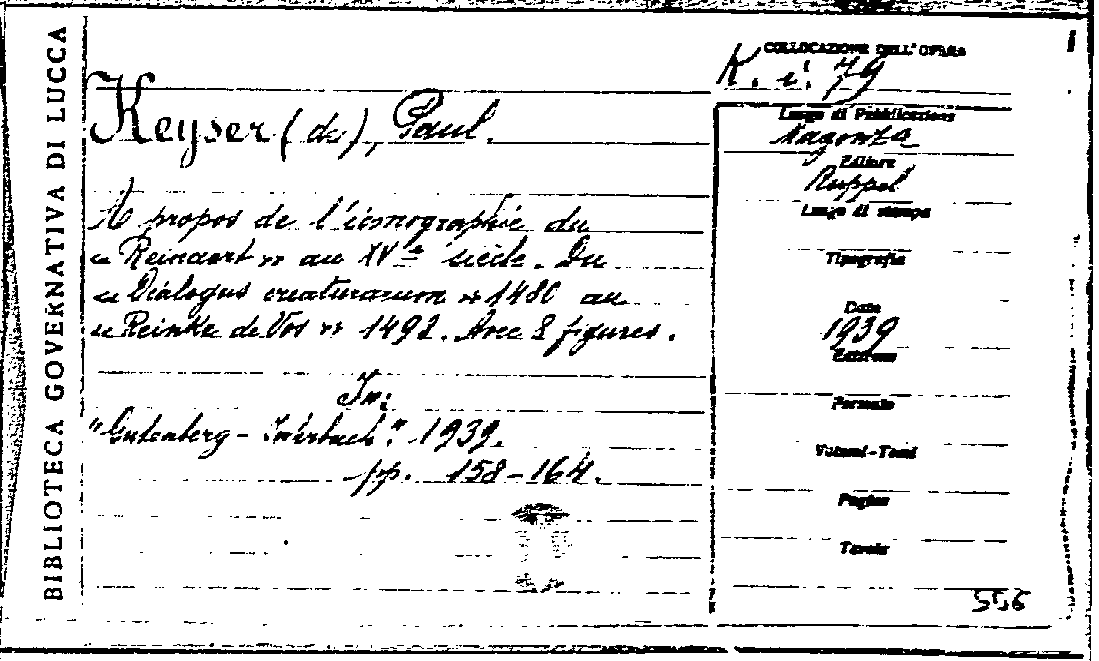 BIBLIOTECA GOVERNATIVA DI LUCCA
Keyser (de), Paul.
A propos de l'iconographie du
« Reinaert » au XVme siècle. Du
« Dialogus creaturarum » 1480 au
« Reinke de Vos » 1492. Avec 8 figures.
In:
"Gutenberg - Jahrbuch". 1939.
pp. 158-164.
COLLOCAZIONE DELL'OPERA
K. i. 79
Luogo di Pubblicazione
Magonza
Editore
Ruppel
Luogo di stampa
Tipografia
Data
1939
Edizione
Formato
Volumi-Tomi
Pagine
Tavole
556